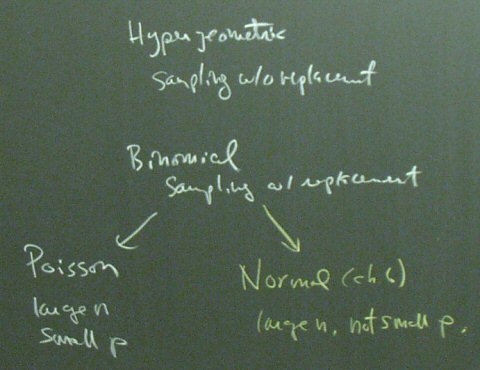 Hypergeometric
Sampling w/o replacement
Binomial
Sampling w/ replacement
Poisson
large n
Small p
Normal (ch 6)
large n, not small p.